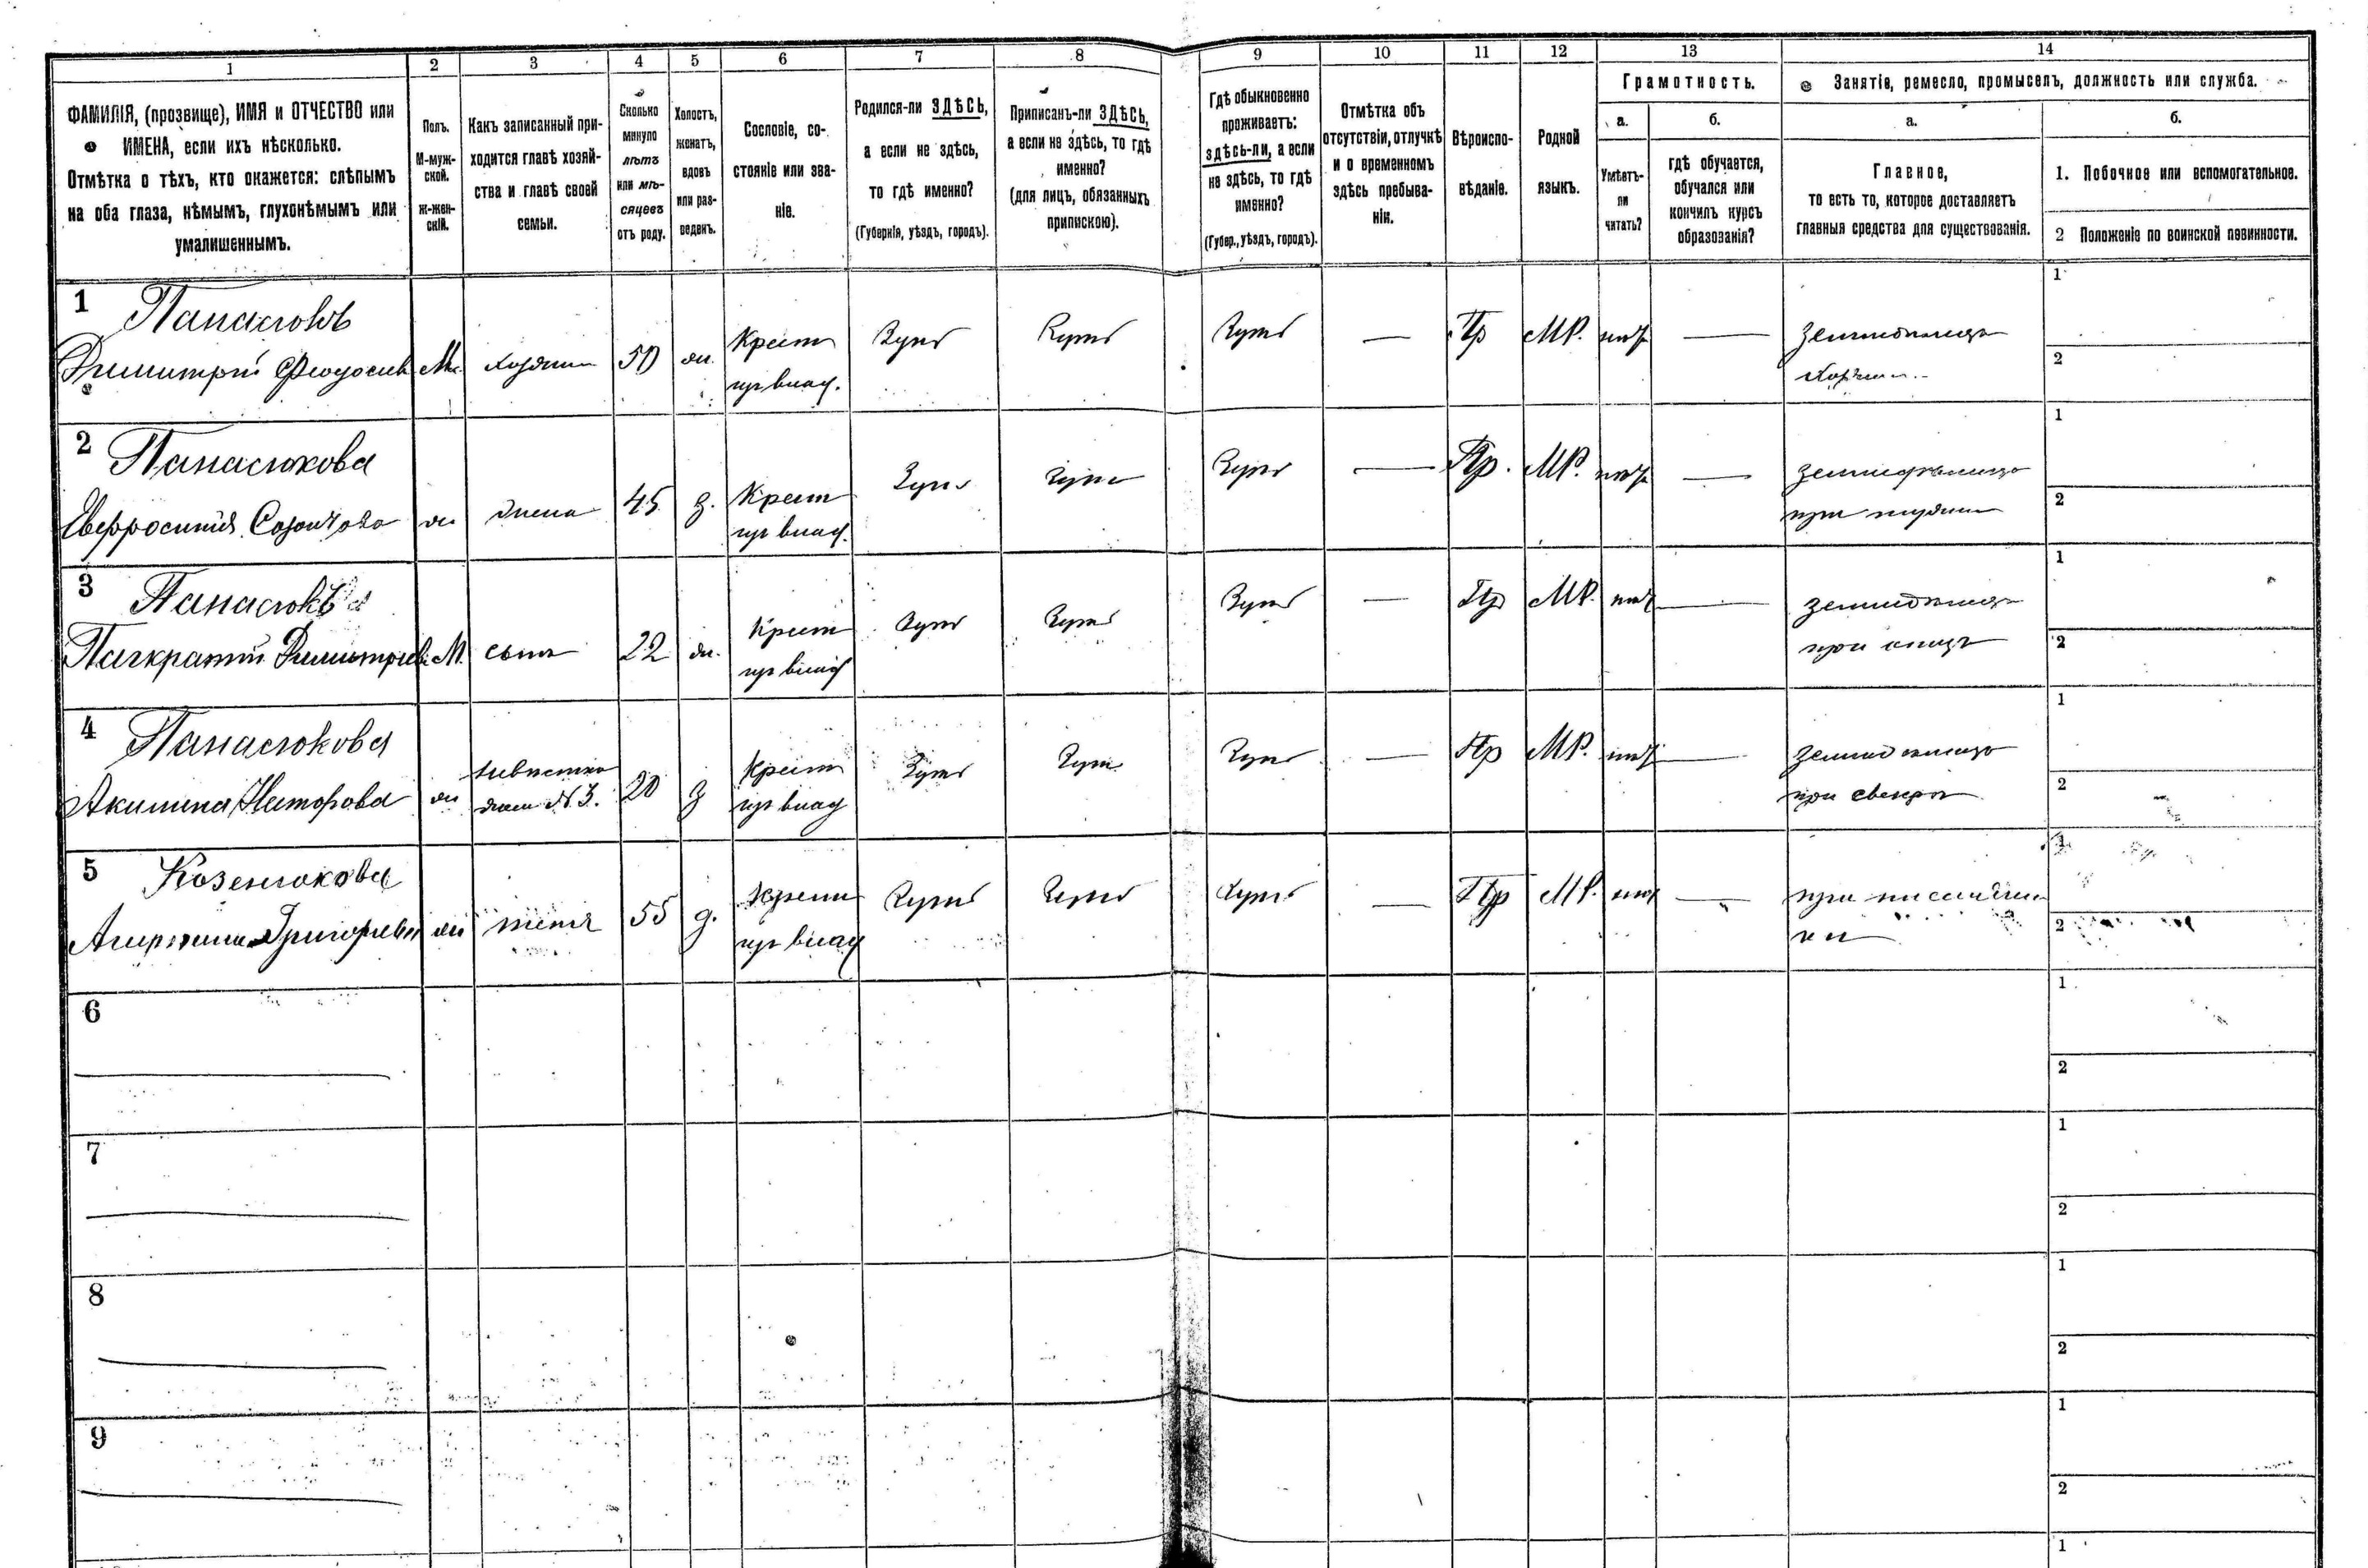 1 2 3 4 5 6 7 8 9 10 11 12 13 14
ФАМИЛІЯ, (прозвище), ИМЯ и ОТЧЕСТВО или
ИМЕНА, если ихъ нѣсколько.
Отмѣтка о тѣхъ, кто окажется: слѣпымъ
на оба глаза, нѣмымъ, глухонѣмымъ или
умалишеннымъ.
Полъ.
М-муж-
ской.
ж-жен-
скій.
Какъ записанный при-
ходится главѣ хозяй-
ства и главѣ своей
семьи.
Сколько
минуло
лѣтъ
или мѣ-
сяцевъ
отъ роду.
Холостъ,
женатъ,
вдовъ
или раз-
веденъ.
Сословіе, со-
стояніе или зва-
ніе.
Родился-ли ЗДѢСЬ,
а если не здѣсь,
то гдѣ именно?
(Губернія, уѣздъ, городъ).
Приписанъ-ли ЗДѢСЬ,
а если не здѣсь, то гдѣ
именно?
(для лицъ, обязанныхъ
припискою).
Гдѣ обыкновенно
проживаетъ:
здѣсь-ли, а если
не здѣсь, то гдѣ
именно?
(Губер., уѣздъ, городъ).
Отмѣтка объ
отсутствіи, отлучкѣ
и о временномъ
здѣсь пребыва-
ніи.
Вѣроиспо-
вѣданіе.
Родной
языкъ.
Грамотность.
а.
Умѣетъ-
ли
читать?
б.
гдѣ обучается,
обучался или
кончилъ курсъ
образованія?
Занятіе, ремесло, промыселъ, должность или служба.
а.
Главное,
то есть то, которое доставляетъ
главныя средства для существованія.
б.
1. Побочное или вспомогательное.
2 Положеніе по воинской повинности.
1 Панасюкъ
Димитрій Феодосіев М. хозяин 50 ж. Крест Пр МР. нѣт
из влад.
1
2
2 Панасюкова
Евфросинія Созонтова ж жена 45 з. Крест Пр. МР. нѣт
из влад.
1
2
3 Панасюкъ
Панкратій Димитріев М. сынъ 22 ж. Крест Пр МР. нѣт
из влад при отцѣ
1
2
4 Панасюкова
Акилина Несторова ж невѣстка
жена №3. 20 з Крест Пр МР. нѣт
из влад при свекрѣ
1
2
5 Козенюкова
Григорьева ж тетя 55 д. Крест Пр МР. нѣт при
из влад
1
2
6 1
2
7 1
2
8 1
2
9 1
2
1